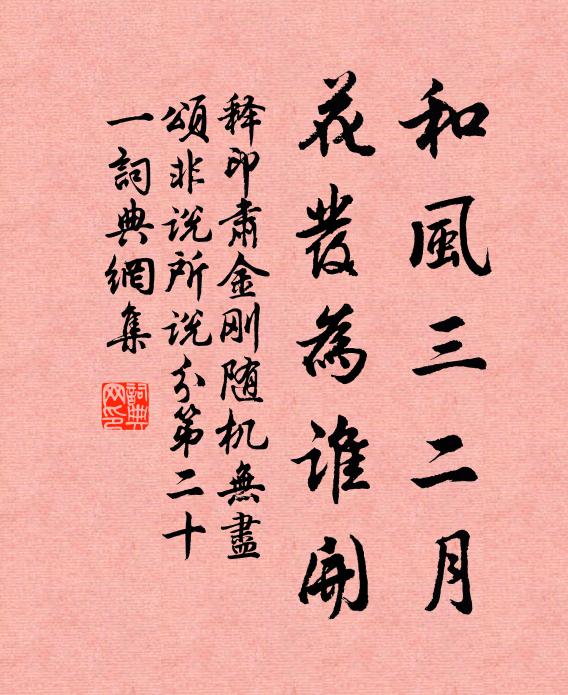 和風三二月
花發為誰開
释印肅金刚随机無盡
頌非说所说分第二十
一詞典網集
詞典
网印